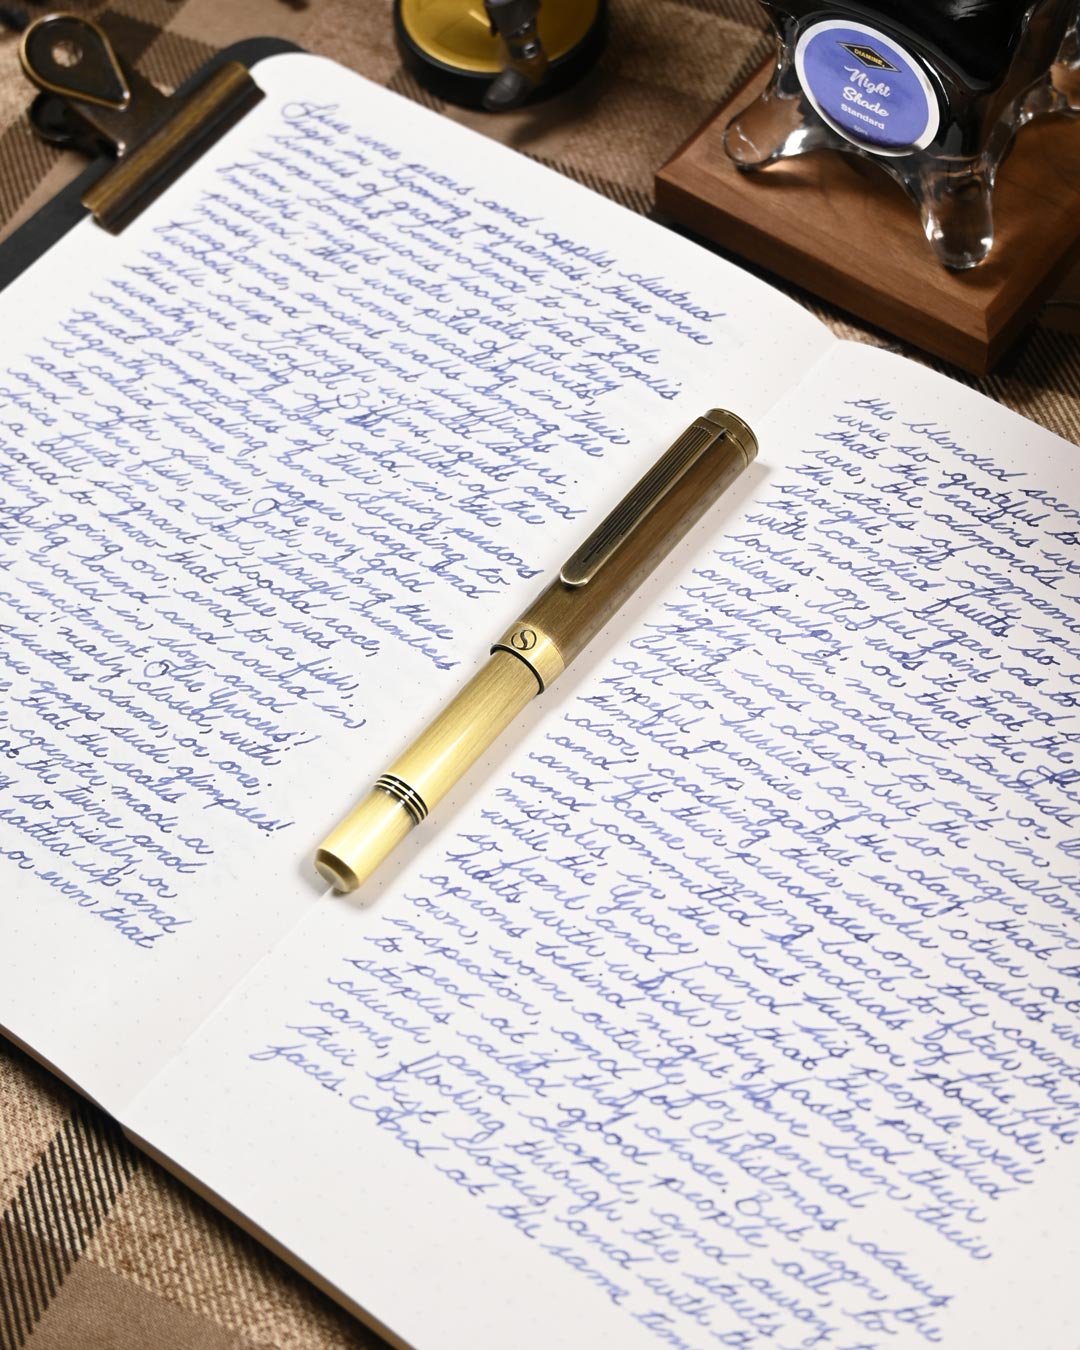 There were pears and apples, clustered
high in blooming pyramids; there were
bunches of grapes, made, in the
shopkeepers' benevolence, to dangle
from conspicuous hooks, that people's
mouths might water gratis as they
passed; there were piles of filberts,
mossy and brown, recalling, in their
fragrance, ancient walks among the
woods, and pleasant shufflings
ankle deep through withered leaves;
there were Norfolk Biffins, squat and
swarthy, setting off the yellow of the
oranges and lemons, and in the
great compactness of their juicy persons
urgently entreating and beseeching to
be carried home in paper bags and
eaten after dinner. The very gold
and silver fish, set forth among these
choice fruits in a bowl, though members
of a dull stagnant-blooded race,
appeared to know that there was
something going on; and, to a fish,
round and round in
world in slow and
excitement. The Grocers'!
Grocers'! nearly closed, with
shutters down, or one;
gaps such glimpses!
that the scales
counter made a
that the twine and
so briskly, or
rattled up and
or even that
the blended scents
were so grateful to
that the raisins were
rare, the almonds
the sticks of cinnamon
straight,
the candied fruits so
with molten sugar as to
lookers-on feel faint and
bilious. Nor was it that the
and pulpy, or that the
blushed in modest tartness
highly decorated boxes, or
was good to eat and in
Christmas but the customers
all so hurried and so eager in
hopeful promise of the day, that
tumbled up against each other at
door, crashing their wicker baskets
and left their purchases on the counter
and came running back to fetch them
and committed hundreds of the like
mistakes in the best humor possible;
while the Grocer and his people were
so frank and fresh that the polished
with which they fastened their
aprons behind might have been their
own, worn outside for general
inspection, and for Christmas daws
to peck at if they chose. But soon, the
steeples called good people all, to
church and chapel, and away
came, flocking through the streets
their best clothes, and with
faces. And at the same
DIAMINE
Night
Shade
Standard